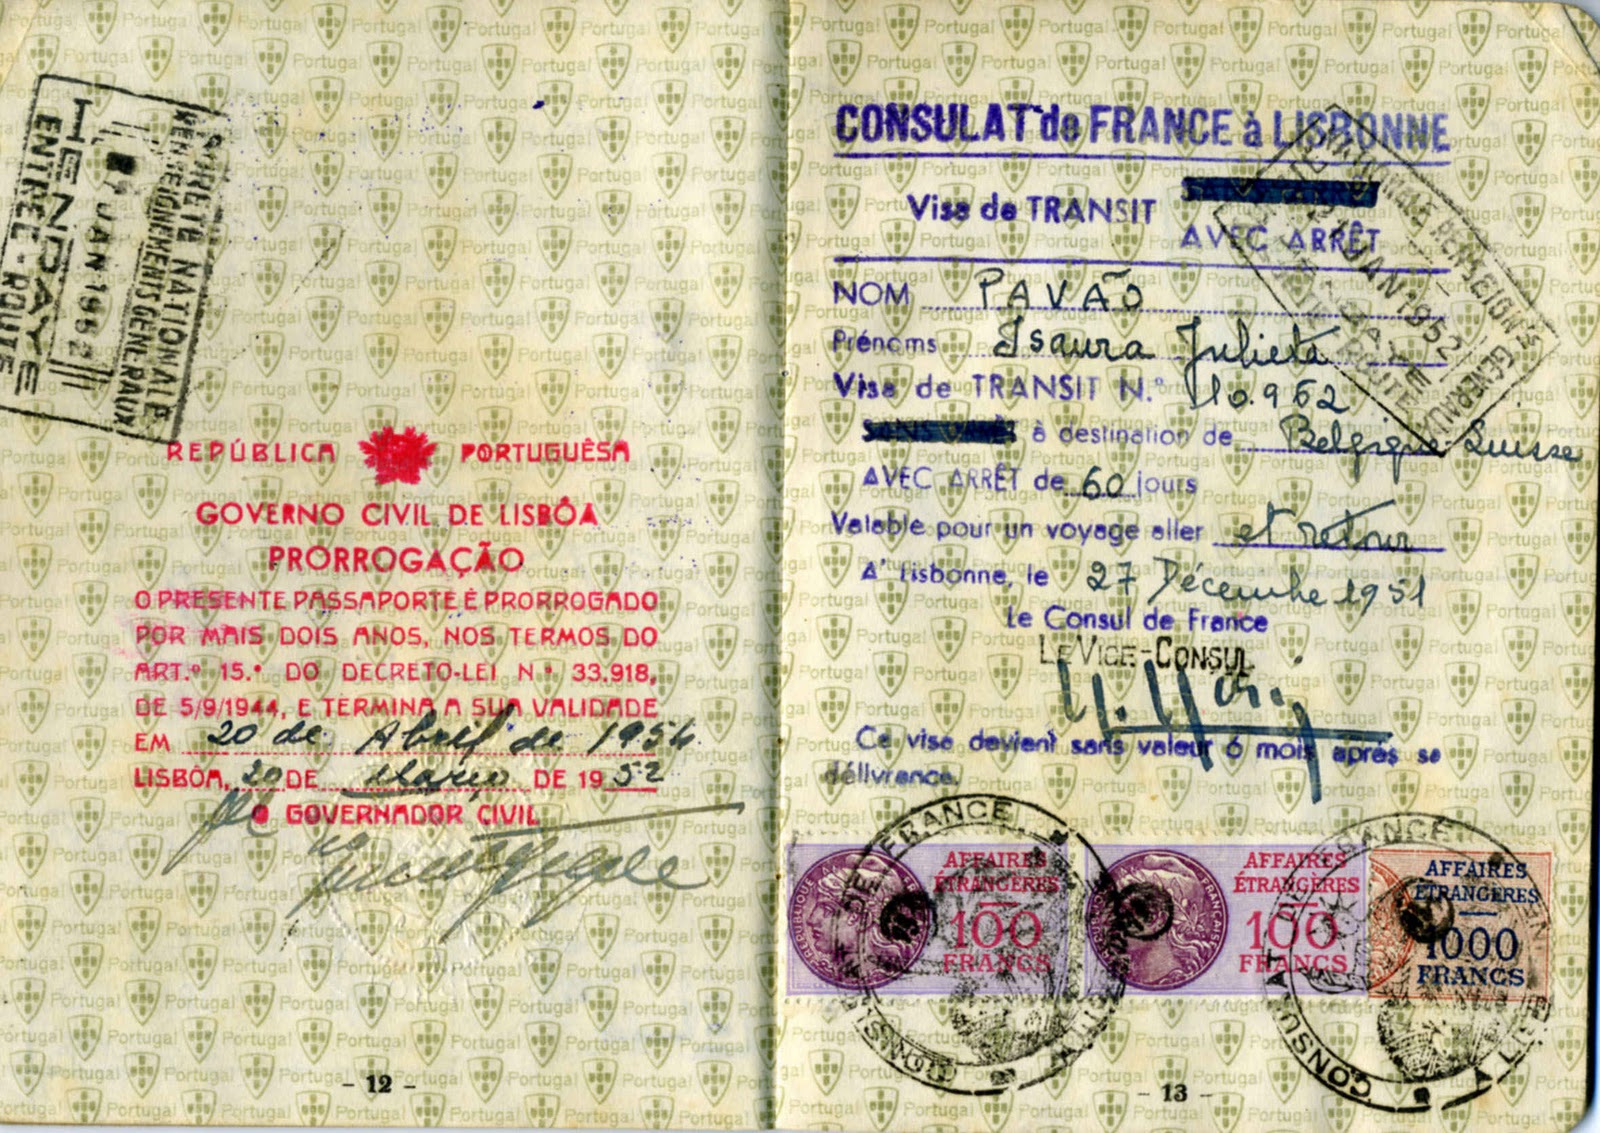 SURETÉ NATIONALE
RENSEIGNEMENTS GENERAUX
JAN 1952
HENDAYE
ENTRÉE-ROUTE
REPÚBLICA PORTUGUÊSA
GOVERNO CIVIL DE LISBÔA
PRORROGAÇÃO
O PRESENTE PASSAPORTE É PRORROGADO
POR MAIS DOIS ANOS, NOS TERMOS DO
ART.º 15.º DO DECRETO-LEI Nº 33.918,
DE 5/9/1944, E TERMINA A SUA VALIDADE
EM 20 de Abril de 1954
LISBÔA, 20 DE Março DE 1952
O GOVERNADOR CIVIL
- 12 -
CONSULAT de FRANCE à LISBONNE
Visa de TRANSIT
AVEC ARRÊT
NOM PAVÃO
Prénoms Isaura Julieta
Visa de TRANSIT N.º 110.962
SANS ARRÊT à destination de Belgique-Suisse
AVEC ARRÊT de 60 jours
Valable pour un voyage aller et retour
A' Lisbonne, le 27 Décembre 1951
Le Consul de France
LE VICE-CONSUL
Ce visa devient sans valeur 6 mois après sa
délivrance.
NATIONALE RENSEIGNTS GENERAUX
JAN 1952
HENDAYE
ROUTE
AFFAIRES
ÉTRANGÈRES
100
FRANCS
RÉPUBLIQUE FRANÇAISE
AFFAIRES
ÉTRANGÈRES
100
FRANCS
AFFAIRES
ÉTRANGÈRES
1000
FRANCS
CONSULAT DE FRANCE
CONSULAT DE FRANCE
- 13 -
Portugal